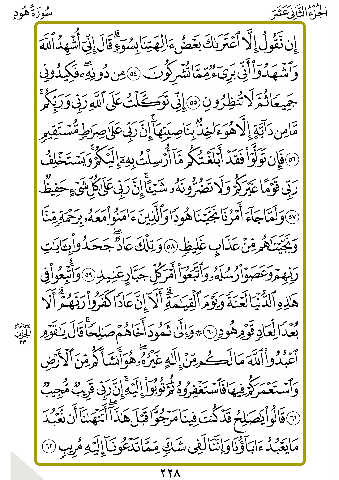 الجزء الثاني عشر
سورة هود
إِن نَّقُولُ إِلَّا ٱعْتَرَىٰكَ بَعْضُ ءَالِهَتِنَا بِسُوٓءٍ ۗ قَالَ إِنِّىٓ أُشْهِدُ ٱللَّهَ
وَٱشْهَدُوٓا۟ أَنِّى بَرِىٓءٌ مِّمَّا تُشْرِكُونَ ٥٤ مِن دُونِهِۦ ۖ فَكِيدُونِى
جَمِيعًا ثُمَّ لَا تُنظِرُونِ ٥٥ إِنِّى تَوَكَّلْتُ عَلَى ٱللَّهِ رَبِّى وَرَبِّكُم ۚ
مَّا مِن دَآبَّةٍ إِلَّا هُوَ ءَاخِذٌۢ بِنَاصِيَتِهَآ ۚ إِنَّ رَبِّى عَلَىٰ صِرَٰطٍ مُّسْتَقِيمٍ
٥٦ فَإِن تَوَلَّوْا۟ فَقَدْ أَبْلَغْتُكُم مَّآ أُرْسِلْتُ بِهِۦٓ إِلَيْكُمْ ۚ وَيَسْتَخْلِفُ
رَبِّى قَوْمًا غَيْرَكُمْ وَلَا تَضُرُّونَهُۥ شَيْـًٔا ۚ إِنَّ رَبِّى عَلَىٰ كُلِّ شَىْءٍ حَفِيظٌ
٥٧ وَلَمَّا جَآءَ أَمْرُنَا نَجَّيْنَا هُودًا وَٱلَّذِينَ ءَامَنُوا۟ مَعَهُۥ بِرَحْمَةٍ مِّنَّا
وَنَجَّيْنَٰهُم مِّنْ عَذَابٍ غَلِيظٍ ٥٨ وَتِلْكَ عَادٌ ۖ جَحَدُوا۟ بِـَٔايَٰتِ
رَبِّهِمْ وَعَصَوْا۟ رُسُلَهُۥ وَٱتَّبَعُوٓا۟ أَمْرَ كُلِّ جَبَّارٍ عَنِيدٍ ٥٩ وَأُتْبِعُوا۟ فِى
هَٰذِهِ ٱلدُّنْيَا لَعْنَةً وَيَوْمَ ٱلْقِيَٰمَةِ ۗ أَلَآ إِنَّ عَادًا كَفَرُوا۟ رَبَّهُمْ ۗ أَلَا
بُعْدًا لِّعَادٍ قَوْمِ هُودٍ ٦٠ ۞ وَإِلَىٰ ثَمُودَ أَخَاهُمْ صَٰلِحًا ۚ قَالَ يَٰقَوْمِ
ٱعْبُدُوا۟ ٱللَّهَ مَا لَكُم مِّنْ إِلَٰهٍ غَيْرُهُۥ ۖ هُوَ أَنشَأَكُم مِّنَ ٱلْأَرْضِ
وَٱسْتَعْمَرَكُمْ فِيهَا فَٱسْتَغْفِرُوهُ ثُمَّ تُوبُوٓا۟ إِلَيْهِ ۚ إِنَّ رَبِّى قَرِيبٌ مُّجِيبٌ
٦١ قَالُوا۟ يَٰصَٰلِحُ قَدْ كُنتَ فِينَا مَرْجُوًّا قَبْلَ هَٰذَآ ۖ أَتَنْهَىٰنَآ أَن نَّعْبُدَ
مَا يَعْبُدُ ءَابَآؤُنَا وَإِنَّنَا لَفِى شَكٍّ مِّمَّا تَدْعُونَآ إِلَيْهِ مُرِيبٍ ٦٢
٢٢٨